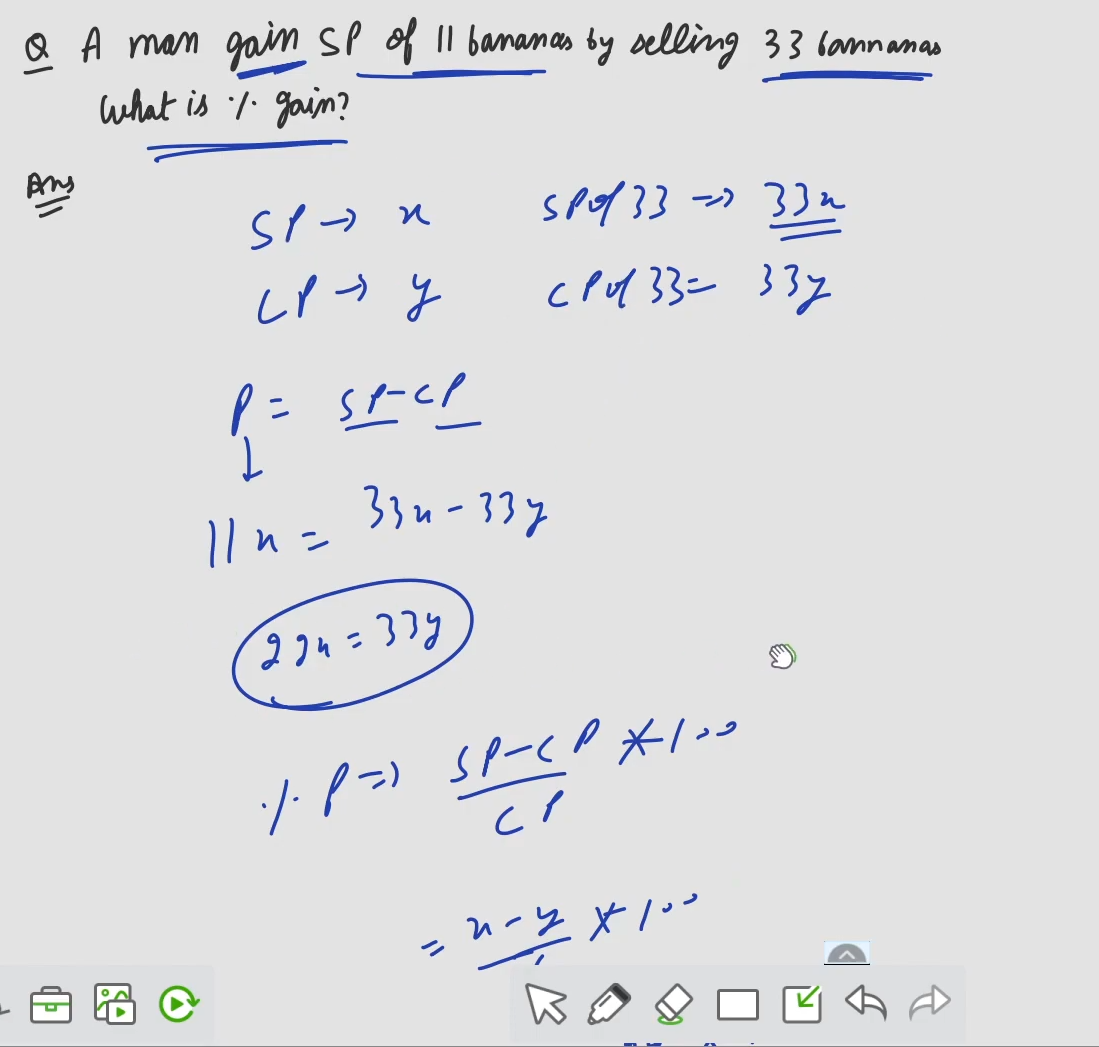 Q A man gain SP of 11 bananas by selling 33 bannanas
What is % gain?
Ans
SP → x SP of 33 => 33x
CP → y CP of 33 = 33y
P = SP-CP
↓
11x = 33x - 33y
22x = 33y
% P => SP-CP * 100
CP
= x-y * 100